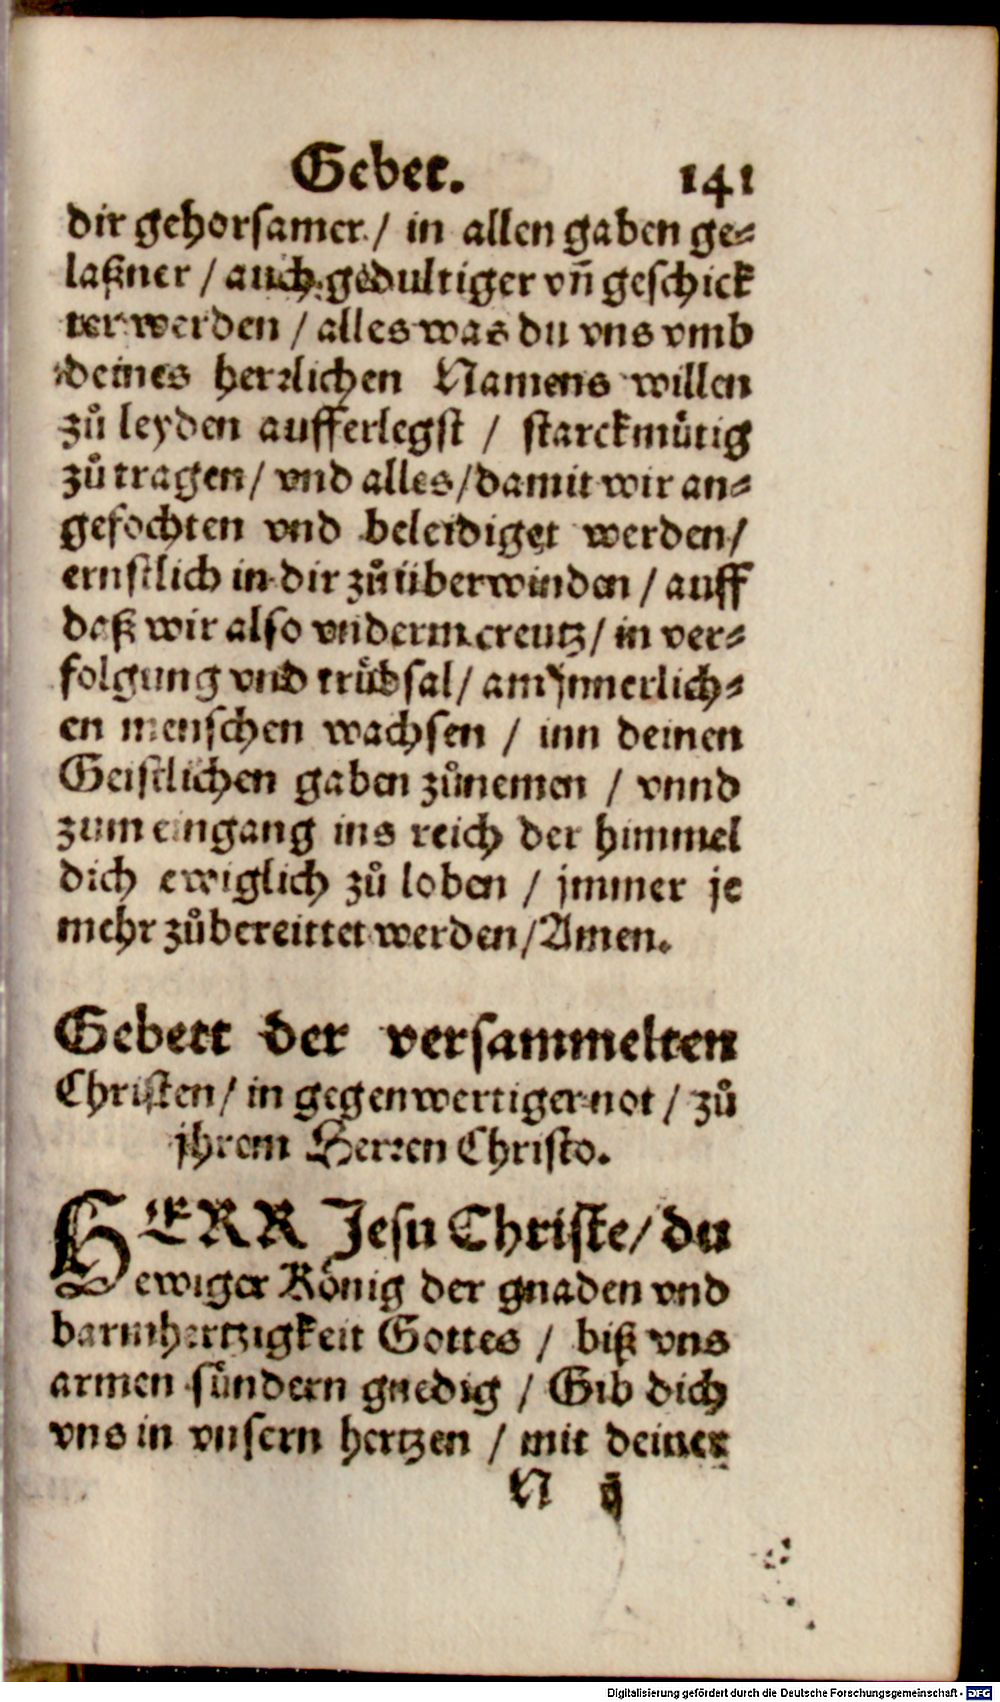 Gebet. 141
dir gehorsamer / in allen gaben ge⸗
laßner / auch gedultiger vn̄ geschick
ter werden / alles was du vns vmb
deines herꝛlichen Namens willen
zů leyden aufferlegst / starckmuͤtig
zů tragen / vnd alles / damit wir an⸗
gefochten vnd beleidiget werden /
ernstlich in dir zů überwinden / auff
daß wir also vnderm creutz / in ver⸗
folgung vnd truͤbsal / am jnnerlich⸗
en menschen wachsen / inn deinen
Geistlichen gaben zůnemen / vnnd
zum eingang ins reich der himmel
dich ewiglich zů loben / jmmer je
mehr zůbereittet werden / Amen.
Gebett der versammelten
Christen / in gegenwertiger not / zů
jhrem Herꝛen Christo.
HERR Jesu Christe / du
ewiger König der gnaden vnd
barmhertzigkeit Gottes / biß vns
armen sündern gnedig / Gib dich
vns in vnsern hertzen / mit deiner
N ij
Digitalisierung gefördert durch die Deutsche Forschungsgemeinschaft - DFG